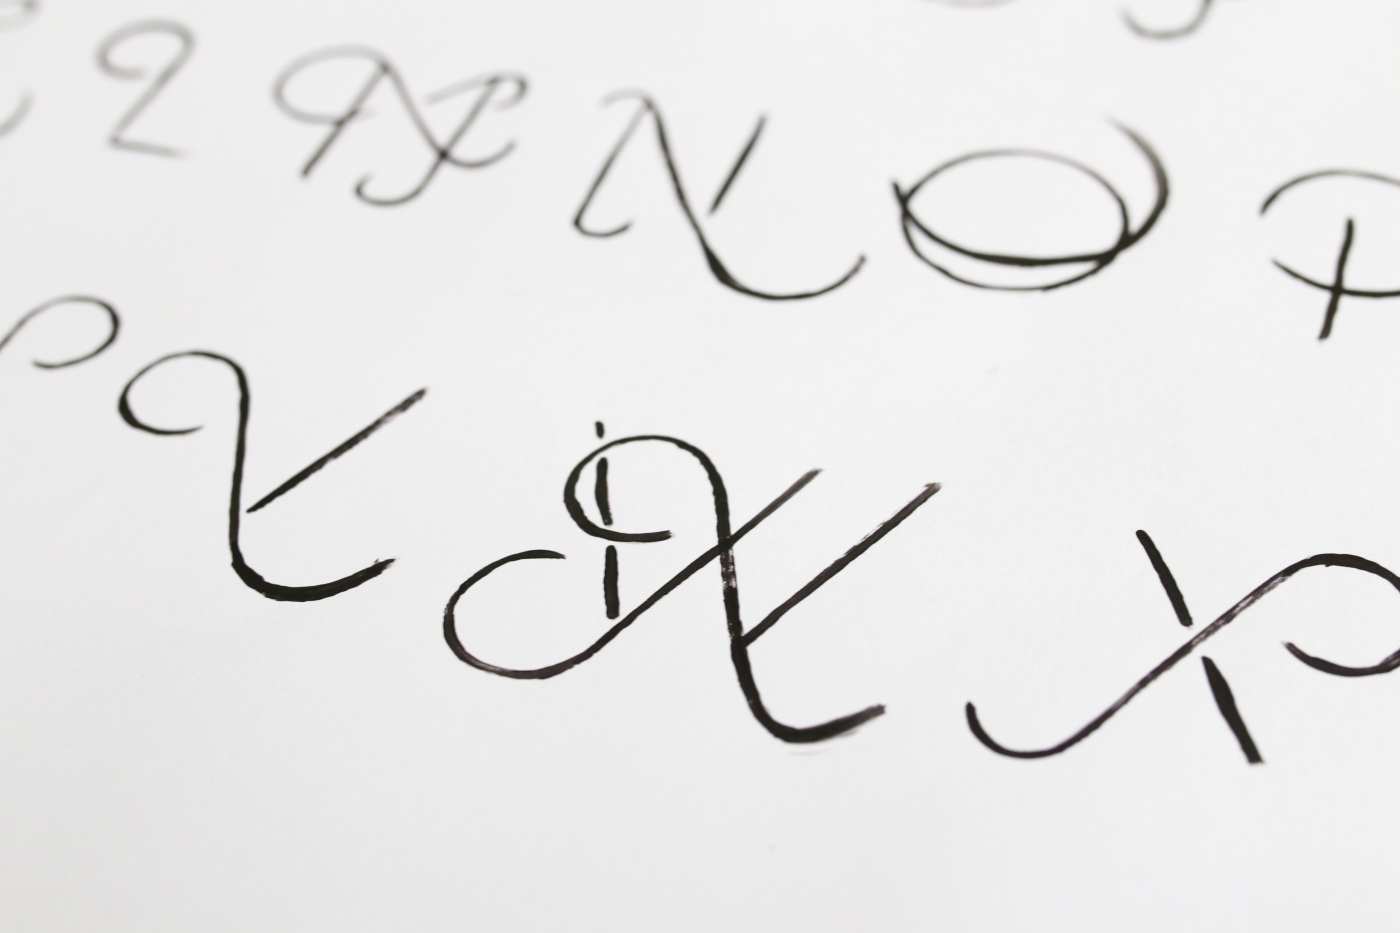 L M N O P
V W X